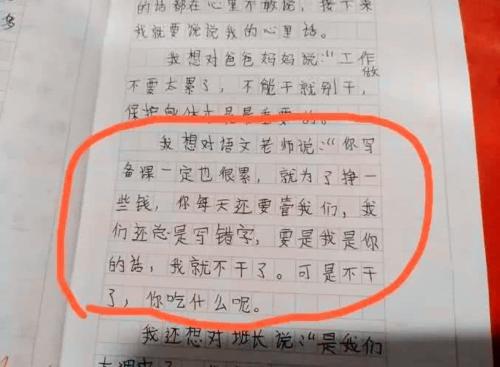 的话都在心里不敢说，接下来
我就要说说我的心里话。
我想对爸爸妈妈说：“工作
不要太累了，不能干就别干，
做
保护身体才是最重要的
我想对语文老师说：“你写
备课一定也很累，就为了挣一
些钱，你每天还要管我们，我
们还总是写错字，要是我是你
的话，我就不干了。可是不干
了，你吃什么呢。
我还想对班长说：“是我们